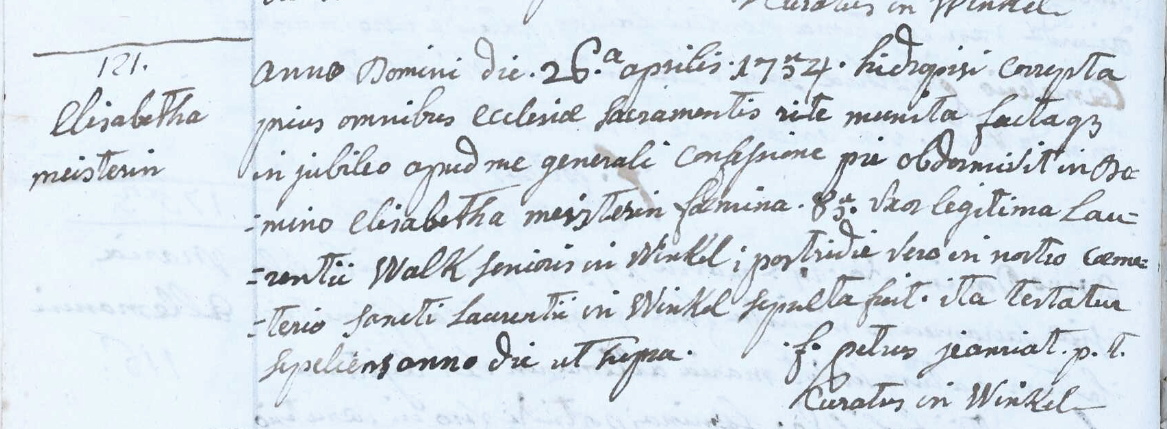 Curatus in Winkel
121.
Elisabetha
meisterin
anno Domini die. 26.a aprilis. 1754. hidropisi correpta
prius omnibus Ecclesiæ sacramentis rite munita factaq3
in jubileo apud me generali confessione pie obdormivit in Do-
-mino Elisabetha meisterin fæmina. 85. Uxor legitima Lau-
-rentii Walk senioris in Winkel; postridie vero in nostro cœme-
-terio sancti Laurentii in Winkel sepulta fuit. ita testatur
sepeliens anno die ut supra. f. petrus jeanriat. p. t.
Curatus in Winkel